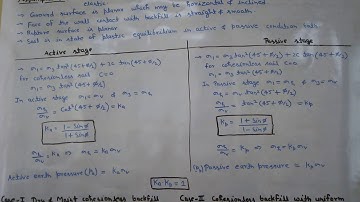 elastic
→ Ground surface is planar which may be horizontal & inclined.
→ Face of the wall contact with backfill is straight & smooth.
→ Rupture surface is planar
→ Soil is in state of plastic equilibrium in active & passive condition both.
Active stage
→ σ1 = σ3 tan²(45+ϕ/2) + 2C tan(45+ϕ/2)
for cohesionless soil C=0
σ1 = σ3 tan²(45+ϕ/2)
In active stage σ1=σv & σ3=σh
σh/σv = Cot²(45+ϕ/2) = Ka
Ka = 1-sinϕ/1+sinϕ
σh/σv = Ka ⇒ σh = Kaσv
Active earth pressure (Pa) = Kaσv
Passive stage
→ σ1 = σ3 tan²(45+ϕ/2) + 2C tan(45+ϕ/2)
for cohesionless soil C=0
σ1 = σ3 tan²(45+ϕ/2)
In Passive stage σ1=σh & σ3=σv
σh/σv = tan²(45+ϕ/2) = Kp
Kp = 1+sinϕ/1-sinϕ
σh/σv = Kp ⇒ σh = Kpσv
(Pp) Passive earth pressure = Kpσv
Ka·Kp = 1
Case-I Dry & Moist cohesionless backfill
Case-II Cohesionless backfill with uniform